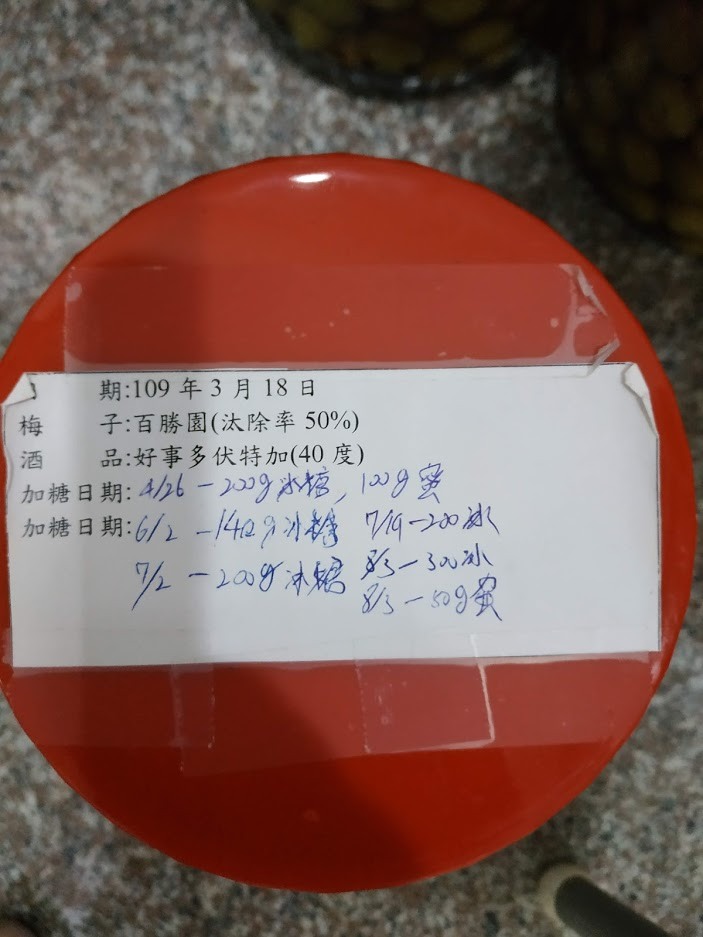 期:109 年 3 月 18 日
梅 子:百勝園(汰除率 50%)
酒 品:好事多伏特加(40 度)
加糖日期:4/26 - 200g 冰糖, 100g 蜜
加糖日期:6/2 - 140g 冰糖 7/19 - 200 冰
7/2 - 200g 冰糖 8/3 - 300 冰
8/3 - 50g 蜜